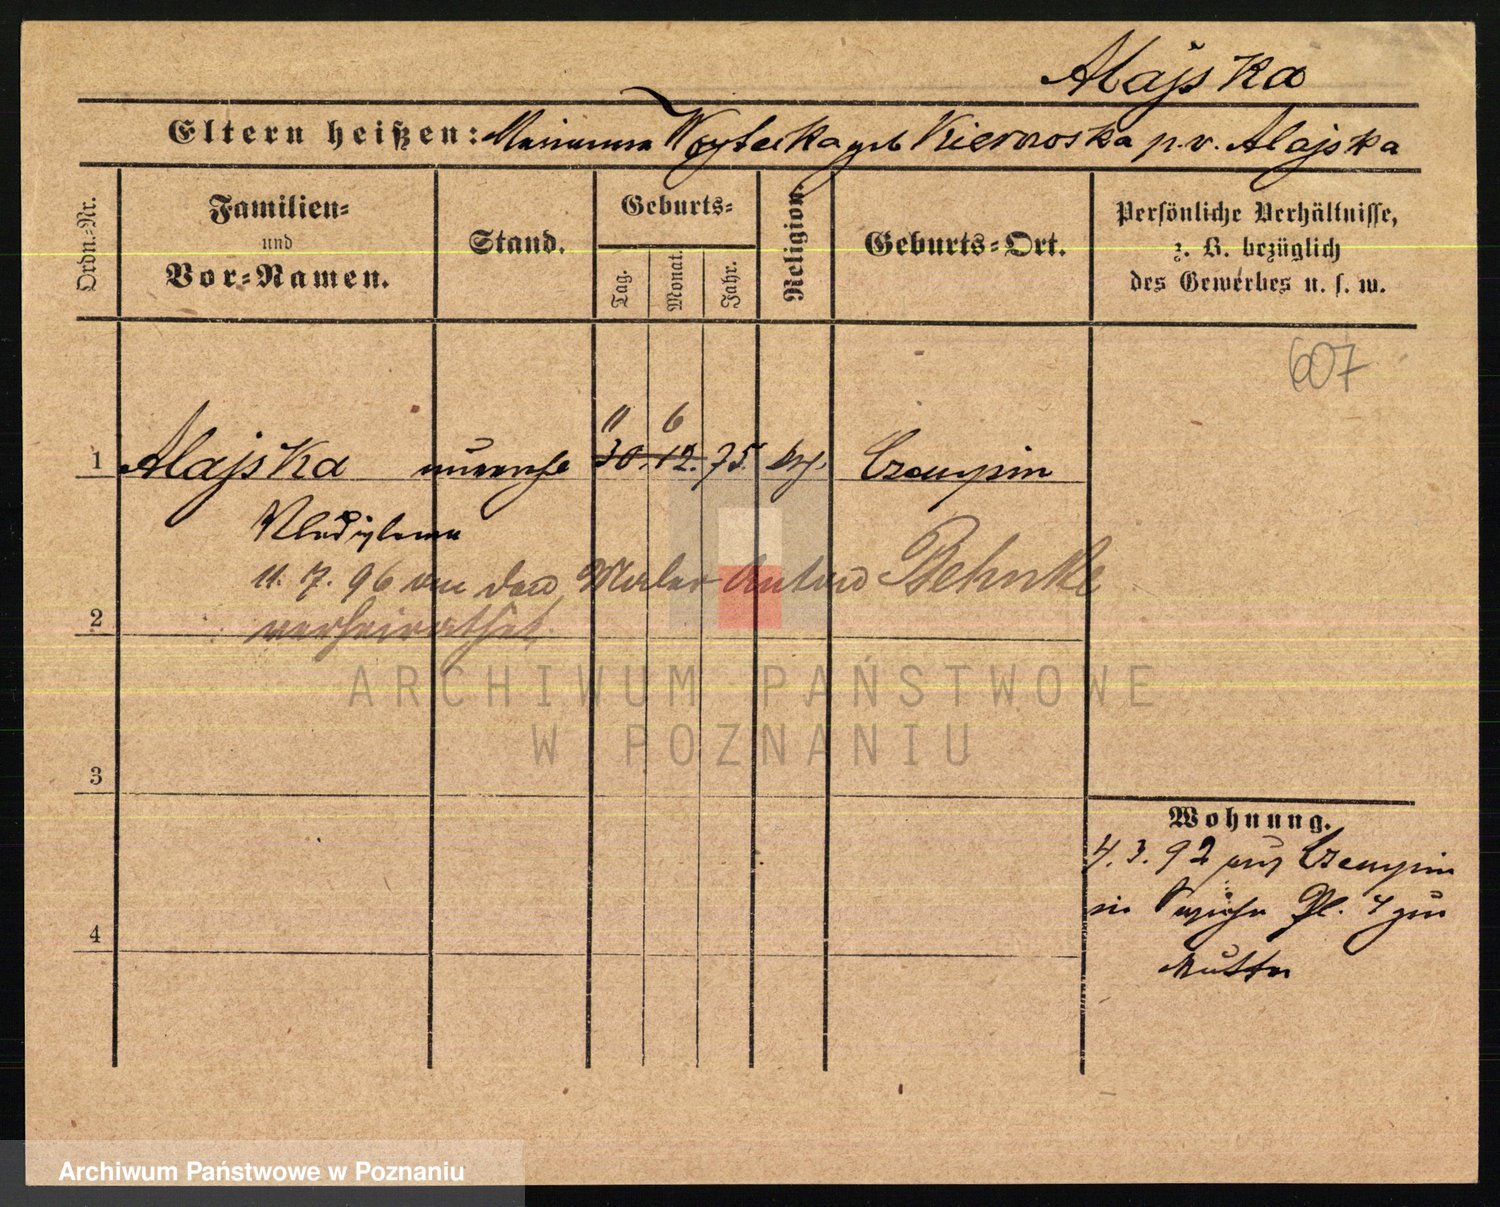 Alajska
Eltern heißen: Marianna Woytecka geb Kierwoska p. v. Alajska
Ordn.-Nr.
Familien-
und
Vor-Namen.
Stand.
Geburts-
Tag.
Monat.
Jahr.
Religion.
Geburts-Ort.
Persönliche Verhältnisse,
z. B. bezüglich
des Gewerbes u. s. w.
607
11 6
1 Alajska 30. 12. 75. Czempin
11. 7. 96 an den Maler Anton Behnke
2 verheirathet.
3
4
Wohnung.
4. 3. 92 aus Czempin
in Pl. 4 zur
Mutter
ARCHIWUM PAŃSTWOWE
W POZNANIU
Archiwum Państwowe w Poznaniu